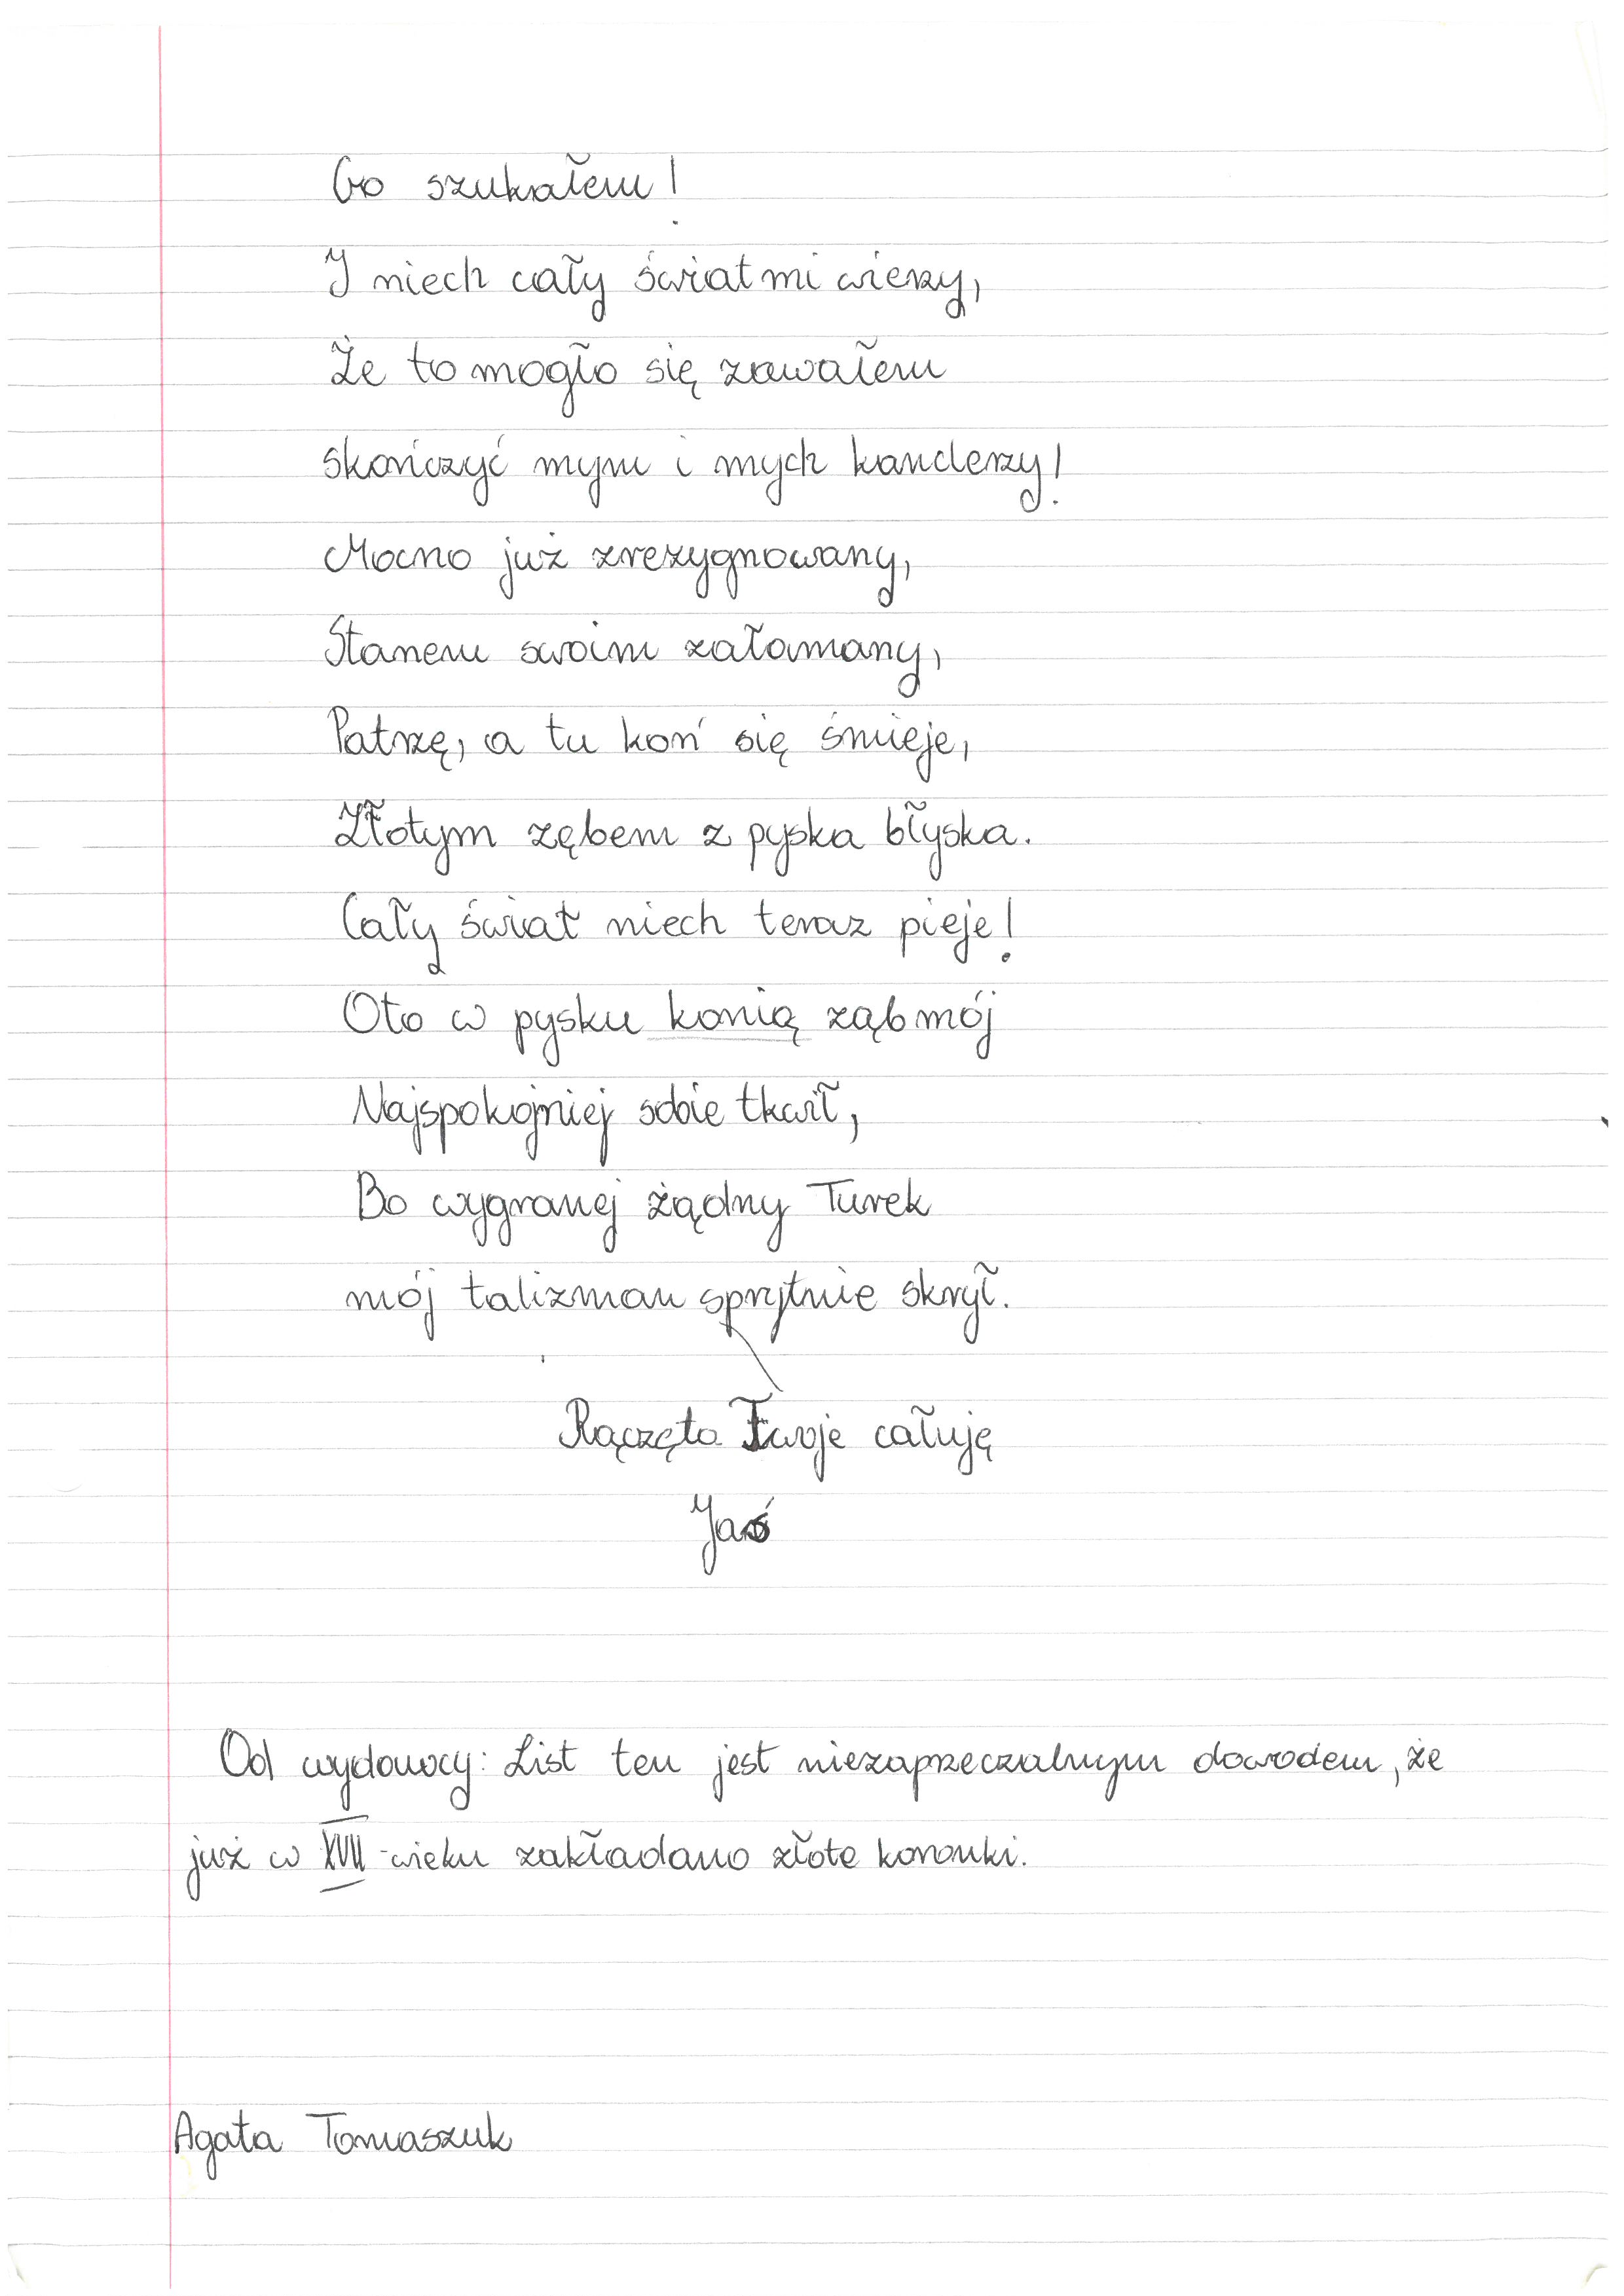 Co szukałem!
I niech cały świat mi wierzy,
Że to mogło się zawałem
skończyć mym i mych handerzy!
Mocno już zrezygnowany,
Stanem swoim załamany,
Patrzę, a tu koń się śmieje,
Złotym zębem z pyska błyska.
Cały świat niech teraz pieje!
Oto w pysku konią ząb mój
Najspokojniej sobie tkwił,
Bo wygranej żądny Turek
mój talizman sprytnie skrył.
Rączęta Twoje całuję
Jaś
Od wydawcy: List ten jest niezaprzeczalnym dowodem, że
już w XVII-wieku zakładano złote koronki.
Agata Tomaszuk